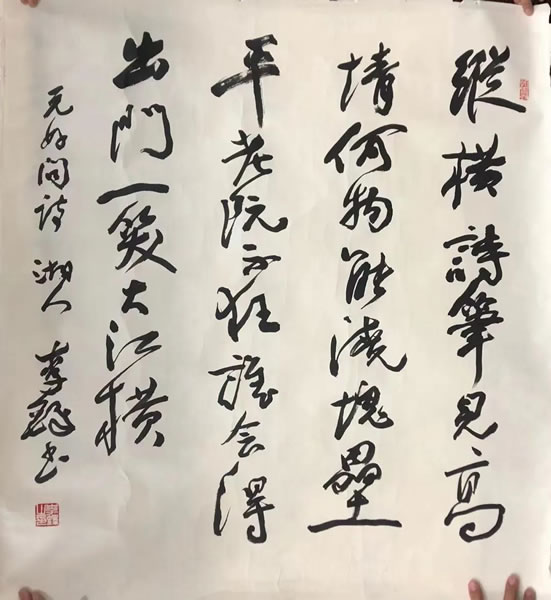 縱横詩筆見高
情何物能澆塊壘
平老阮不狂誰会得
出門一笑大江横
元好问诗 湘人 李鐸书